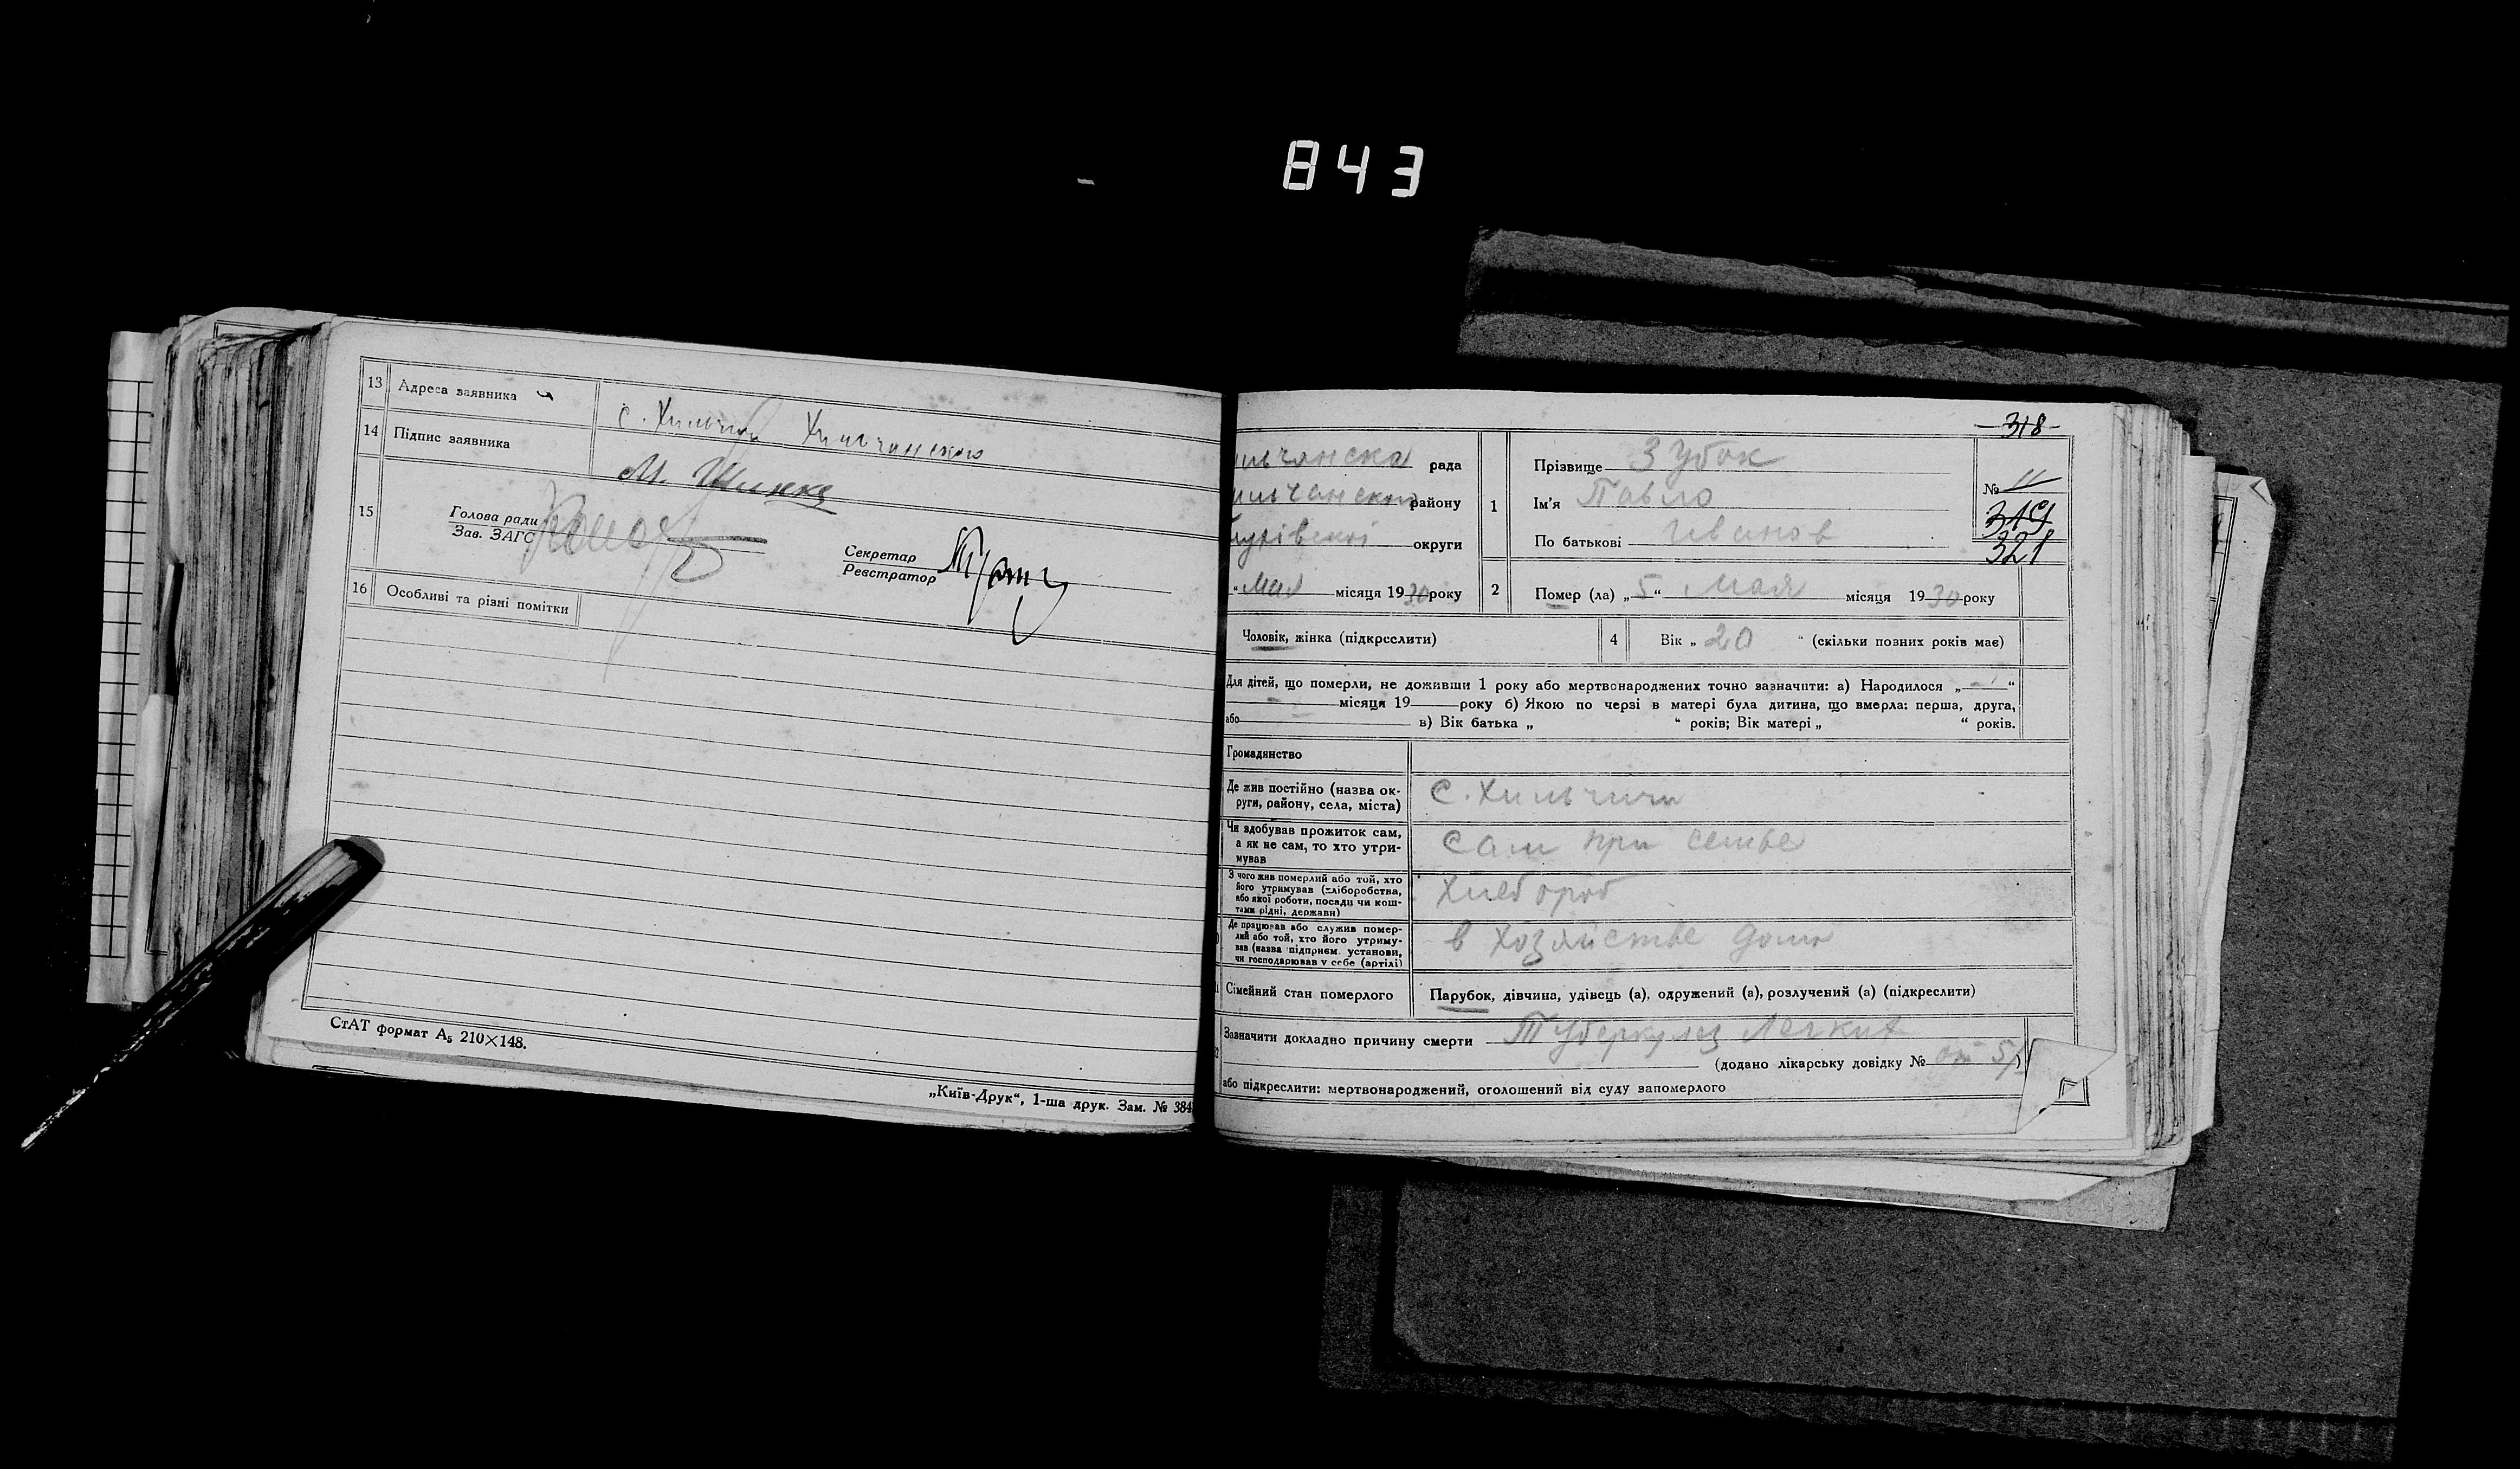 843
13 Адреса заявника с. Хильчичи Хильчанского
14 Підпис заявника М. Шинка
15 Голова ради
Зав. ЗАГС
Секретар
Реєстратор
16 Особливі та різні помітки
СтАТ формат А₅ 210×148.
„Київ-Друк“, 1-ша друк. Зам. № 384
318
ильчанска рада
ильчанского району
лухівскої округи
“ Мая місяця 1930 року
1 Прізвище Зубок
Ім'я Павло
По батькові Иванов
№ 11
319
321
2 Помер (ла) „5“ мая місяця 1930 року
Чоловік, жінка (підкреслити)
4 Вік „20“ (скільки повних років має)
Для дітей, що померли, не доживши 1 року або мертвонароджених точно зазначити: а) Народилося „ “
місяця 19 року б) Якою по черзі в матері була дитина, що вмерла: перша, друга,
або в) Вік батька „ “ років; Вік матері „ “ років.
Громадянство
Де жив постійно (назва ок-
руги, району, села, міста) с. Хильчичи
Чи здобував прожиток сам,
а як не сам, то хто утри-
мував сам при семье
З чого жив померлий або той, хто
його утримував (хліборобства,
або якої роботи, посади чи кош-
тами рідні, держави) Хлебороб
Де працював або служив помер-
лий або той, хто його утриму-
вав (назва підприєм. установи,
чи господарював у себе (артілі) в хозяйстве дома
Сімейний стан померлого Парубок, дівчина, удівець (а), одружений (а), розлучений (а) (підкреслити)
Зазначити докладно причину смерти Туберкулез Легких
(додано лікарську довідку № от 5/ )
або підкреслити: мертвонароджений, оголошений від суду запомерлого